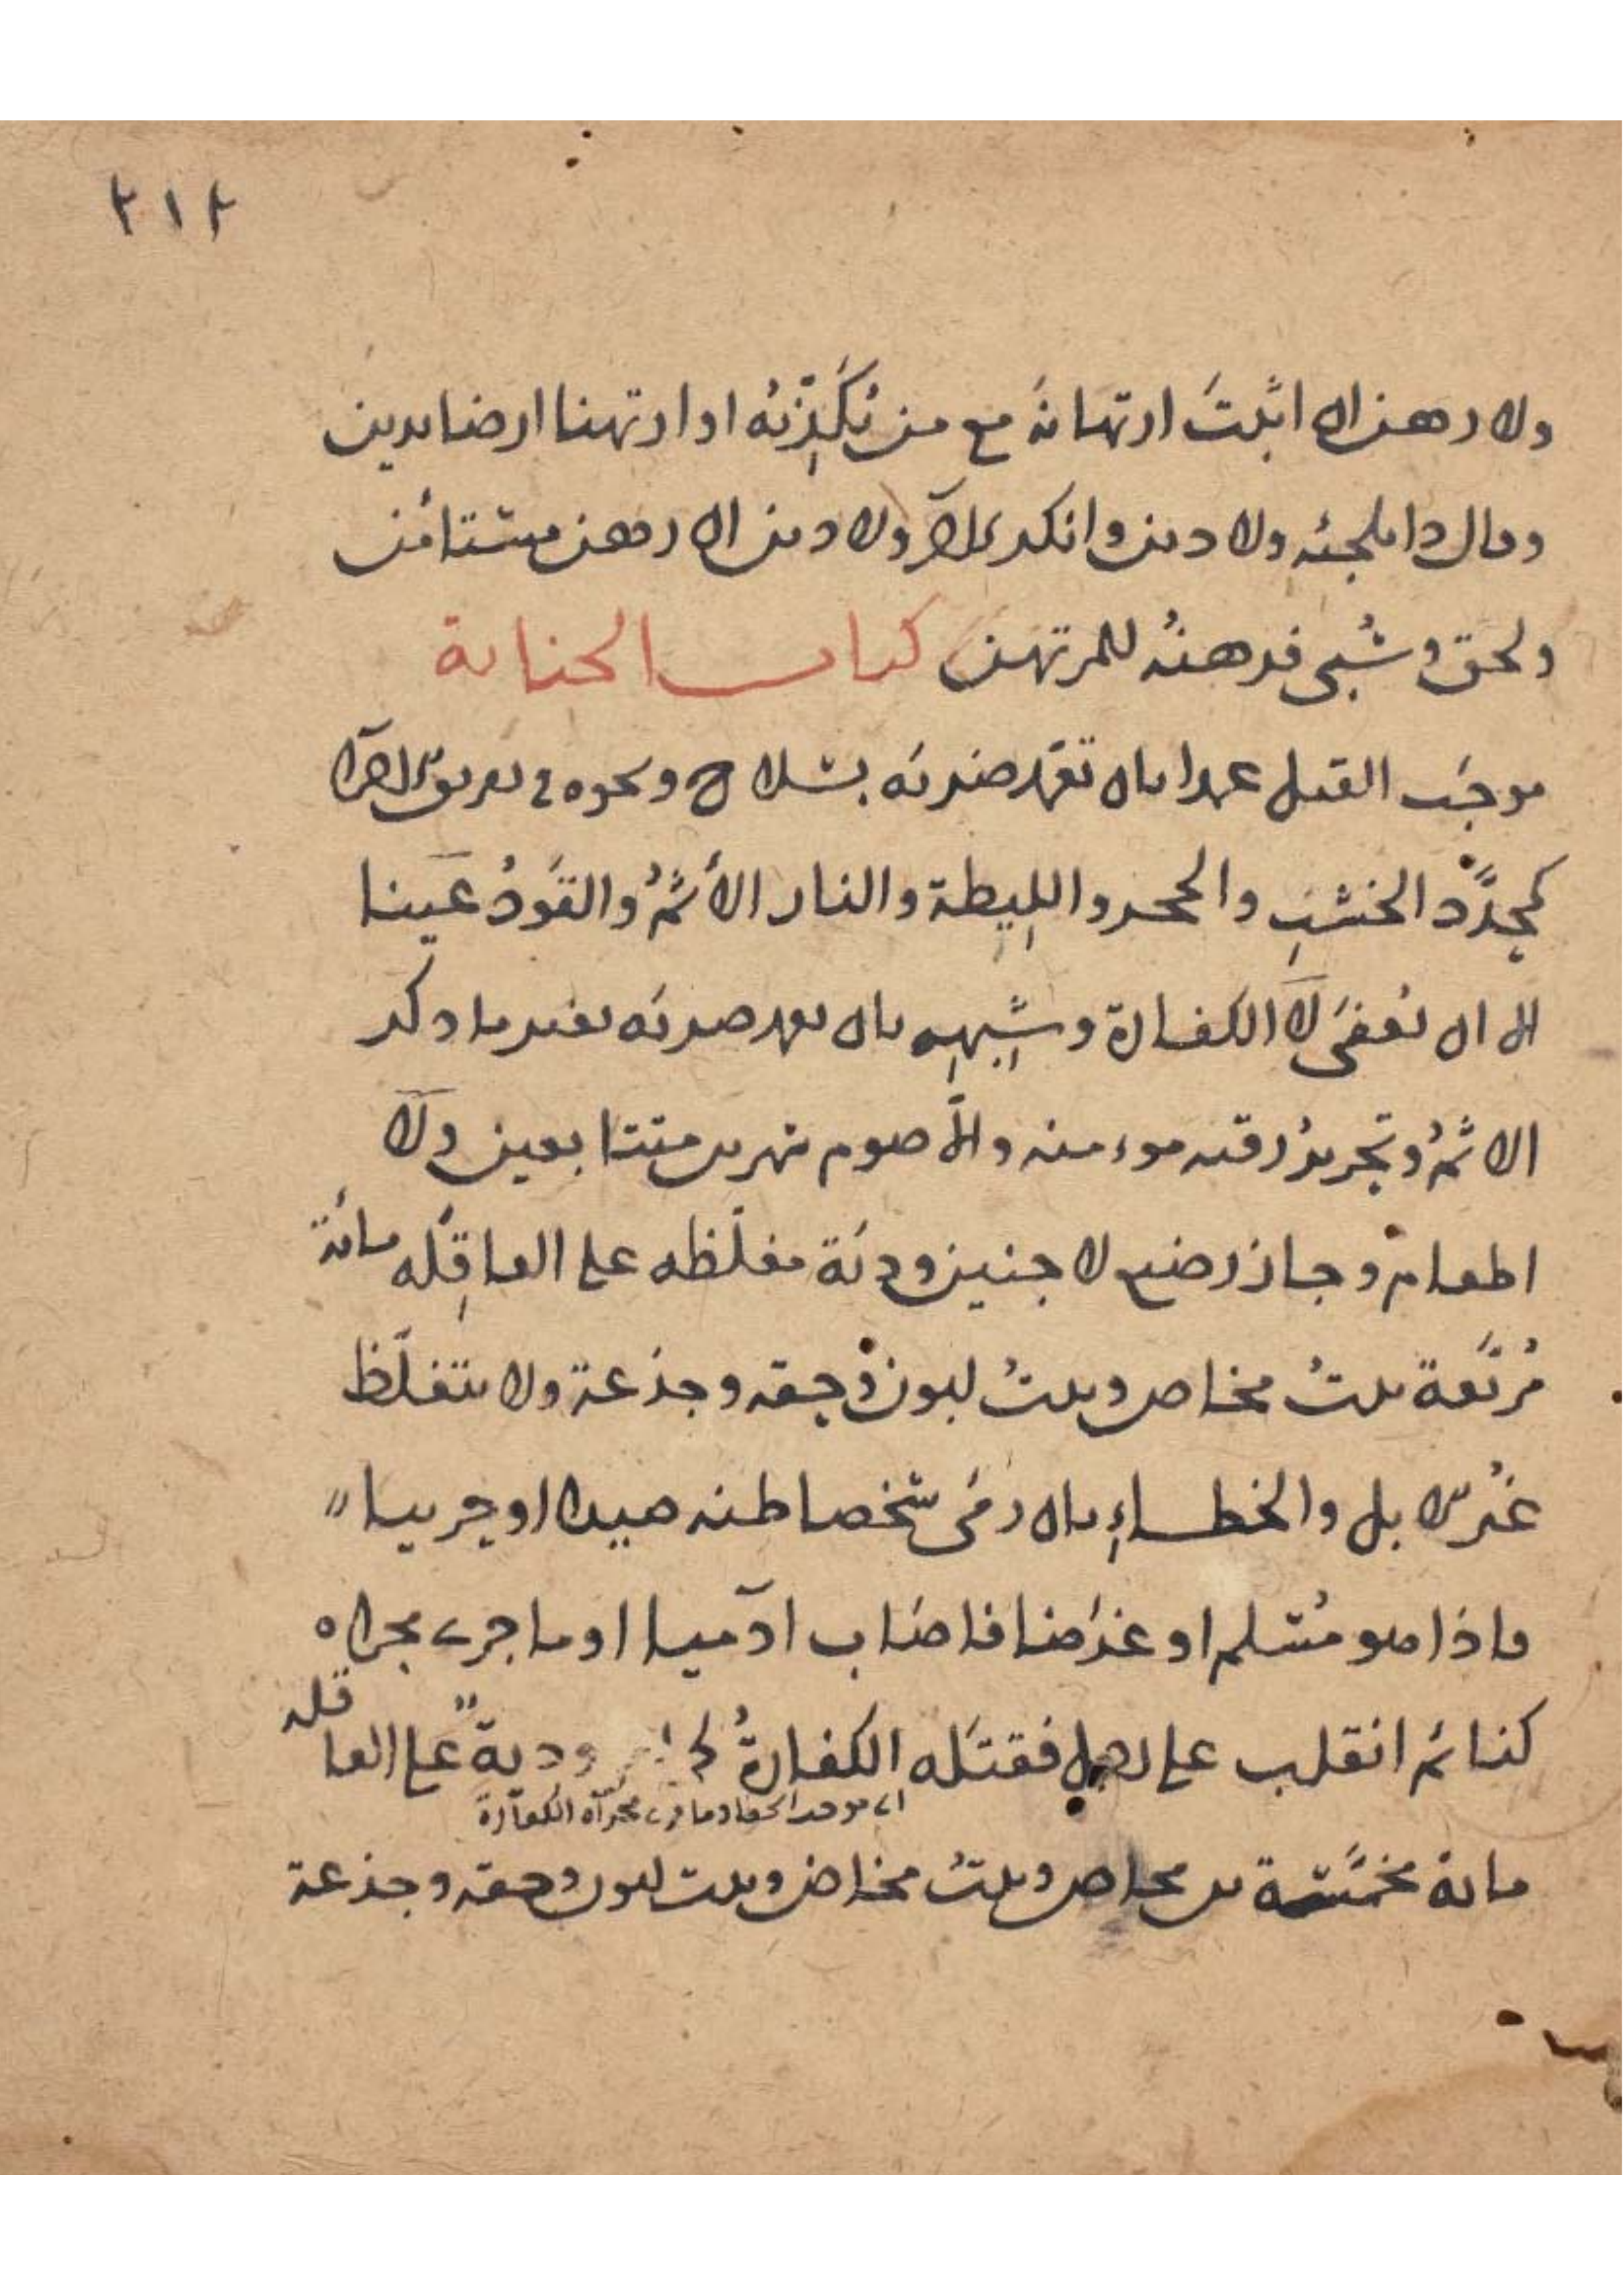 ٢١٢
ولا رهن ان اثبت ارتهانه مع من يكذبه او ارتهنا ارضا بدين
وقال ذا تلجئه ولا دين وانكر الآخر ولا دين ان رهن مستامن
ولحق وسبى فرهنه للمرتهن كتاب الجناية
موجب القتل عمدا بان تعمد ضربه بسلاح ونحوه في تفريق الاجزا
كمحدد الخشب والحجر والليطة والنار الأثم والقود عينا
الا ان يعفى لا الكفارة وشبهه بان تعمد ضربه بغير ما ذكر
الاثم وتحرير رقبه موءمنه والا صوم شهرين متتابعين ولا
اطعام وجاز رضيع لا جنين ودية مغلظه على العاقله مائة
مربعة بنت مخاض وبنت لبون وحقه وجذعة ولا تتغلظ
غير الابل والخطاء بان رمى شخصا ظنه صيدا او حربيا
فاذا هو مسلم او غرضا فاصاب آدميا او ما جرى مجراه
كنائم انقلب على رجل فقتله الكفارة ودية على العاقله
اى موجب الخطا وما جرى مجراه الكفارة
مائة مخمسة ابن مخاض وبنت مخاض وبنت لبون وحقه وجذعة